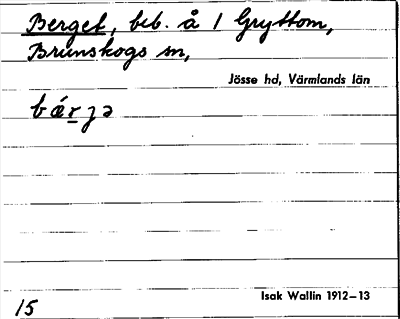 Berget, beb. å 1 Gryttom,
Brunskogs sn,
Jösse hd, Värmlands län
bǽrgə
Isak Wallin 1912–13
15